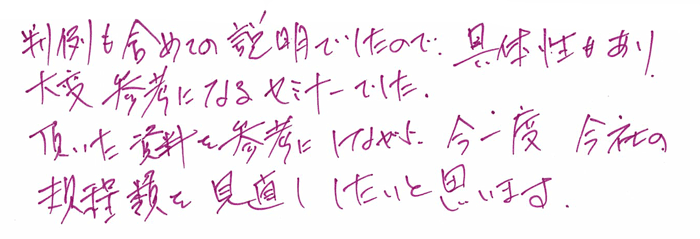 判例も含めての説明でしたので、具体性もあり
大変参考になるセミナーでした。
頂いた資料を参考にしながら、今一度 会社の
規程類を見直ししたいと思います。